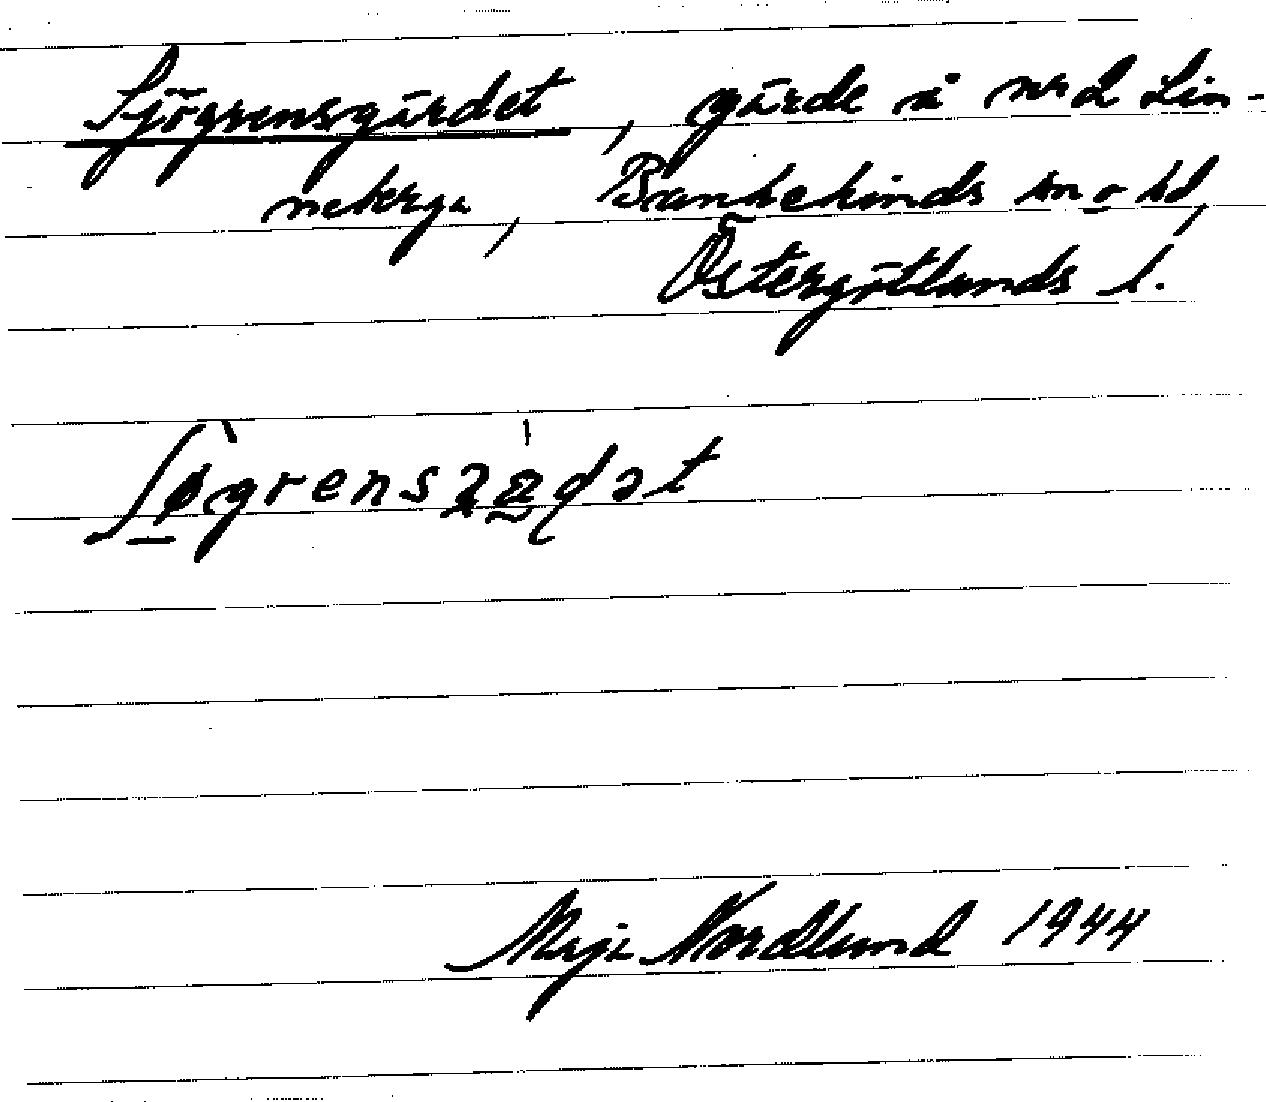 Sjögrensgärdet, gärde å nr 2 Lin-
nekerga, Bankekinds sn o hd,
Östergötlands l.
ʃø̠̀grensʒa̰ɖət
Maja Nordlund 1944